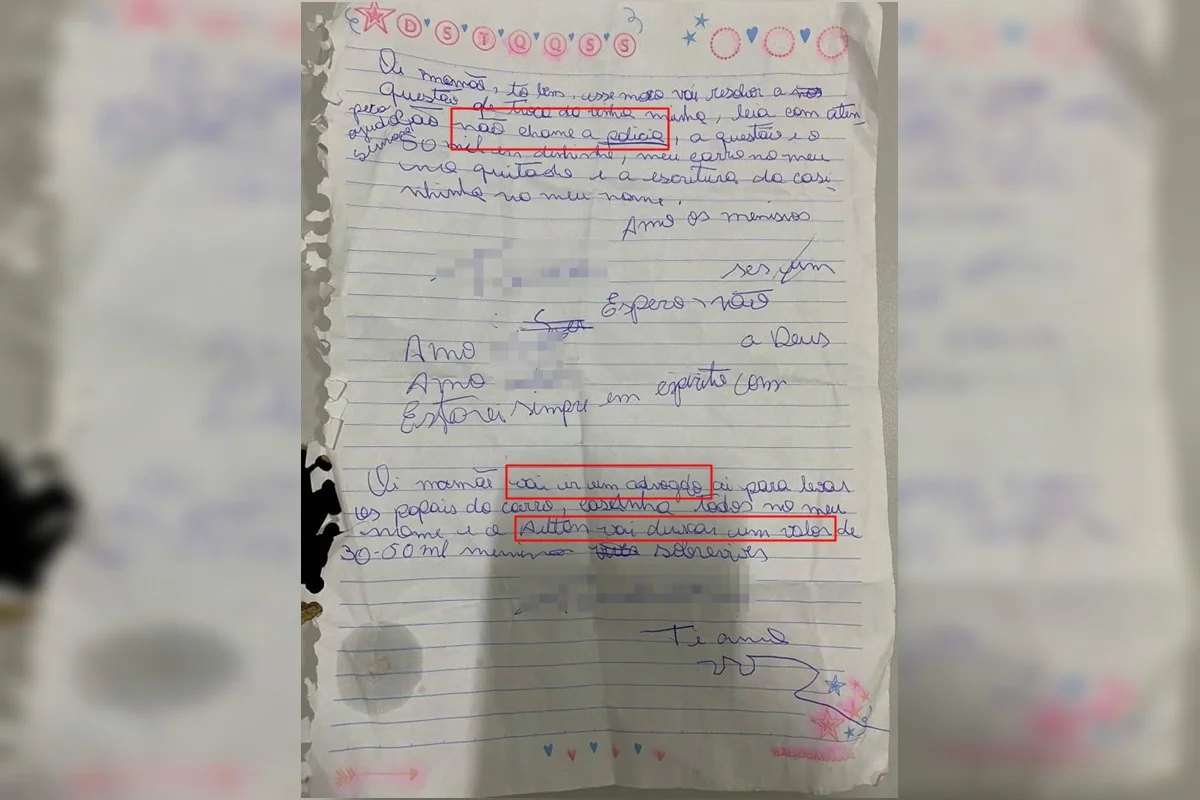 D S T Q Q S S
Oi mamãe, tô bem, esse moço vai resolver a
questão de troca da minha, leia com aten
ção não chame a policia, a questão é o
50 mil em dinheiro, meu carro no meu
nome quitado e a escritura da casi-
nhinha no meu nome.
Amo os meninos
Espero não
a Deus
Amo
Amo
Estarei simpre em espirito com
Oi mamãe vai ir um advogdo ai para levar
os papais do carro, casinha todos no meu
nome e o Ailton vai buscar um valor de
30-50 mil
Te amo